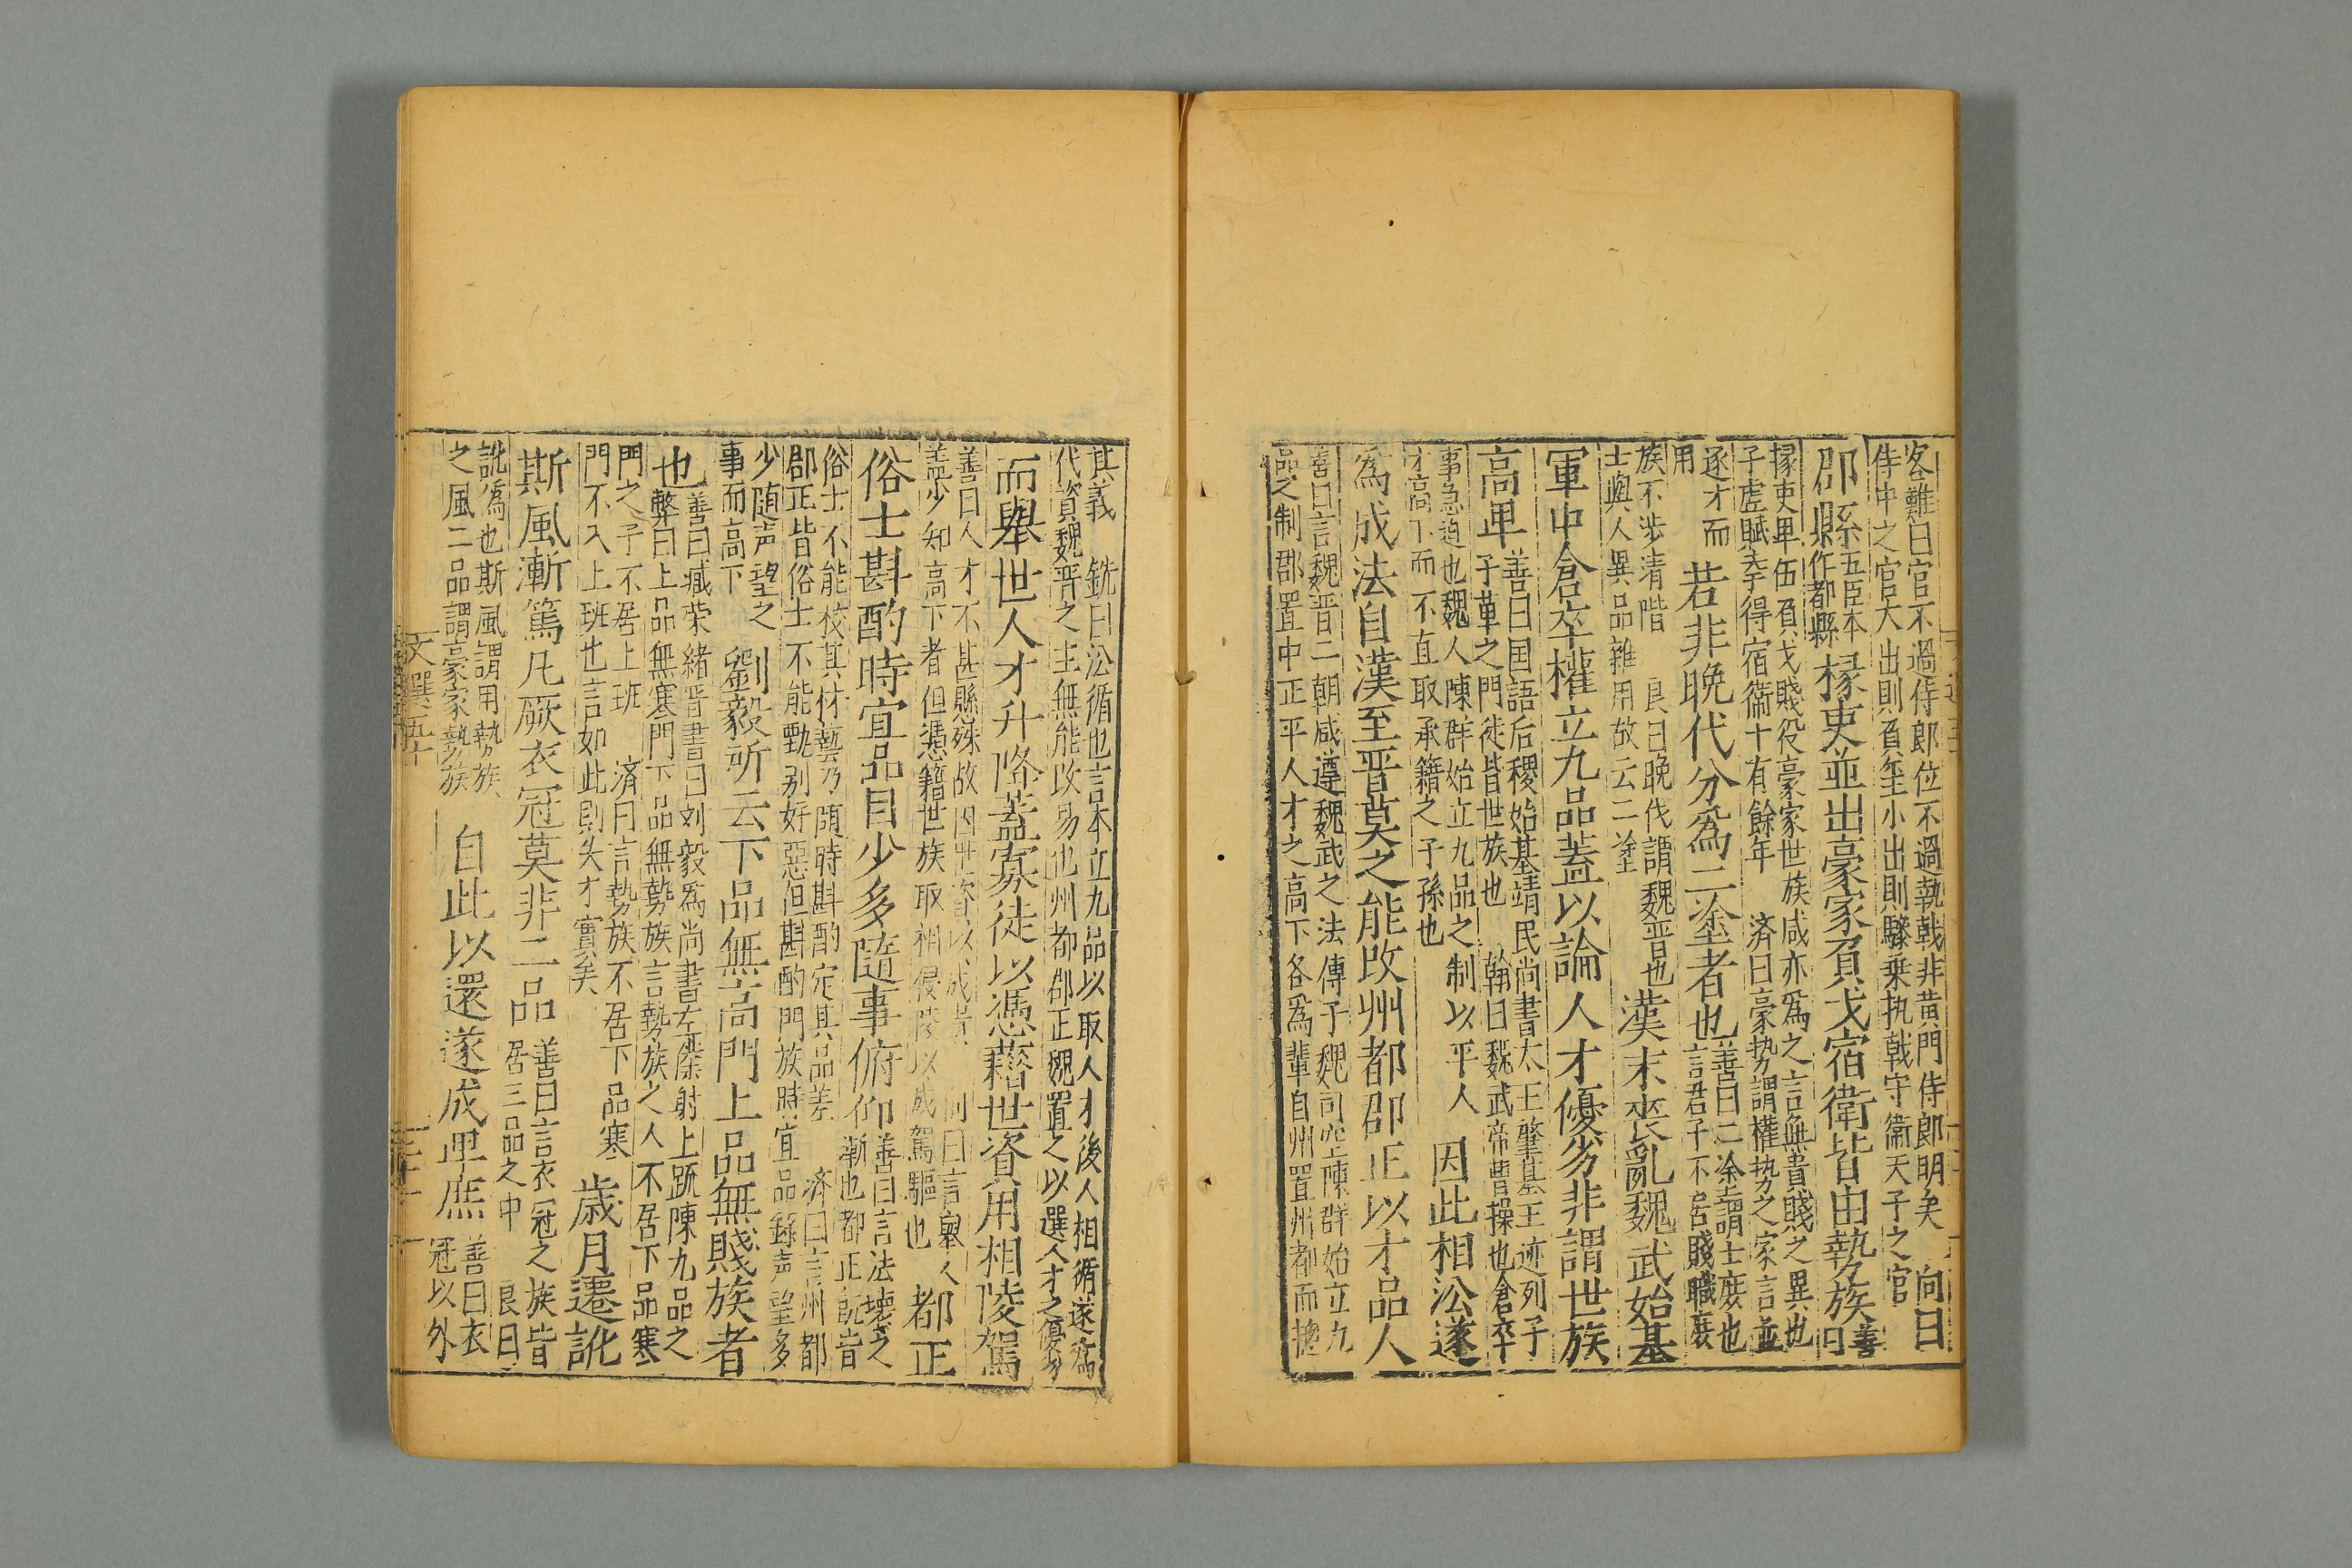 客難曰官不過侍郎位不過執戟非黄門侍郎明矣　向曰
侍中之官大出則負璽小出則驂乗执戟守衞天子之官
郡縣五臣本作都縣掾吏並出豪家負戈宿衛皆由勢族善曰
掾吏卑伍負戈賤役豪家世族咸亦爲之言無貴賤之異也
子虚賦季得宿衞十有餘年　済曰豪势謂權势之家言並
逐才而用若非晩代分爲二塗者也善曰二塗謂士庻也言君子不居賤職庻
族不涉清階　良曰晩代謂魏晋也
士與人異品雜用故云二塗
漢末丧亂魏武始基
軍中倉卒權立九品蓋以論人才優劣非謂世族
高卑善曰囯語后稷始基靖民尚書太王肇基王迹列子
子華之門徒皆世族也　翰曰魏武帝曹操也倉卒
事急迫也魏人陳群始立九品之制以平人
才高下而不直取承籍之子孫也
因此相㳂遂
爲成法自漢至晋莫之能改州都郡正以才品人
善曰言魏晋二朝咸遵魏武之法傳子魏司空陳群始立九
品之制郡置中正平人才之高下各爲輩自州置州都而揔
其義　銑曰㳂循也言本立九品以取人才後人相循遂爲
代資魏晋之主無能改易也州都郡正魏置之以選人才之優劣
而舉世人才升降蓋寡徒以憑藉世資用相陵駕
善曰人才不甚懸殊故因世資以成貴　向曰言舉人
盖少知高下者但憑籍世族取相侵陵以成駕驅也
都正
俗士斟酌時宜品目少多隨事俯仰善曰言法壊之漸也都正旣皆
俗士不能校其材藝乃随時斟酌定其品差　済曰言州都
郡正皆俗士不能甄别好惡但斟酌門族時宜品録声望多
少随声望之事而高下
劉毅所云下品無高門上品無賤族者
也善曰臧荣緒晋書曰刘毅爲尚書左僕射上䟽陳九品之
弊曰上品無寒門下品無勢族言勢族之人不居下品寒
門之子不居上班　済曰言勢族不居下品寒
門不入上班也言如此則失才實矣
歳月遷訛
斯風漸篤凡厥衣冠莫非二品善曰言衣冠之族皆居三品之中　良曰
訛爲也斯風謂用勢族
之風二品謂豪家勢族
自此以還遂成卑庶善曰衣冠以外
文選五十
二十一